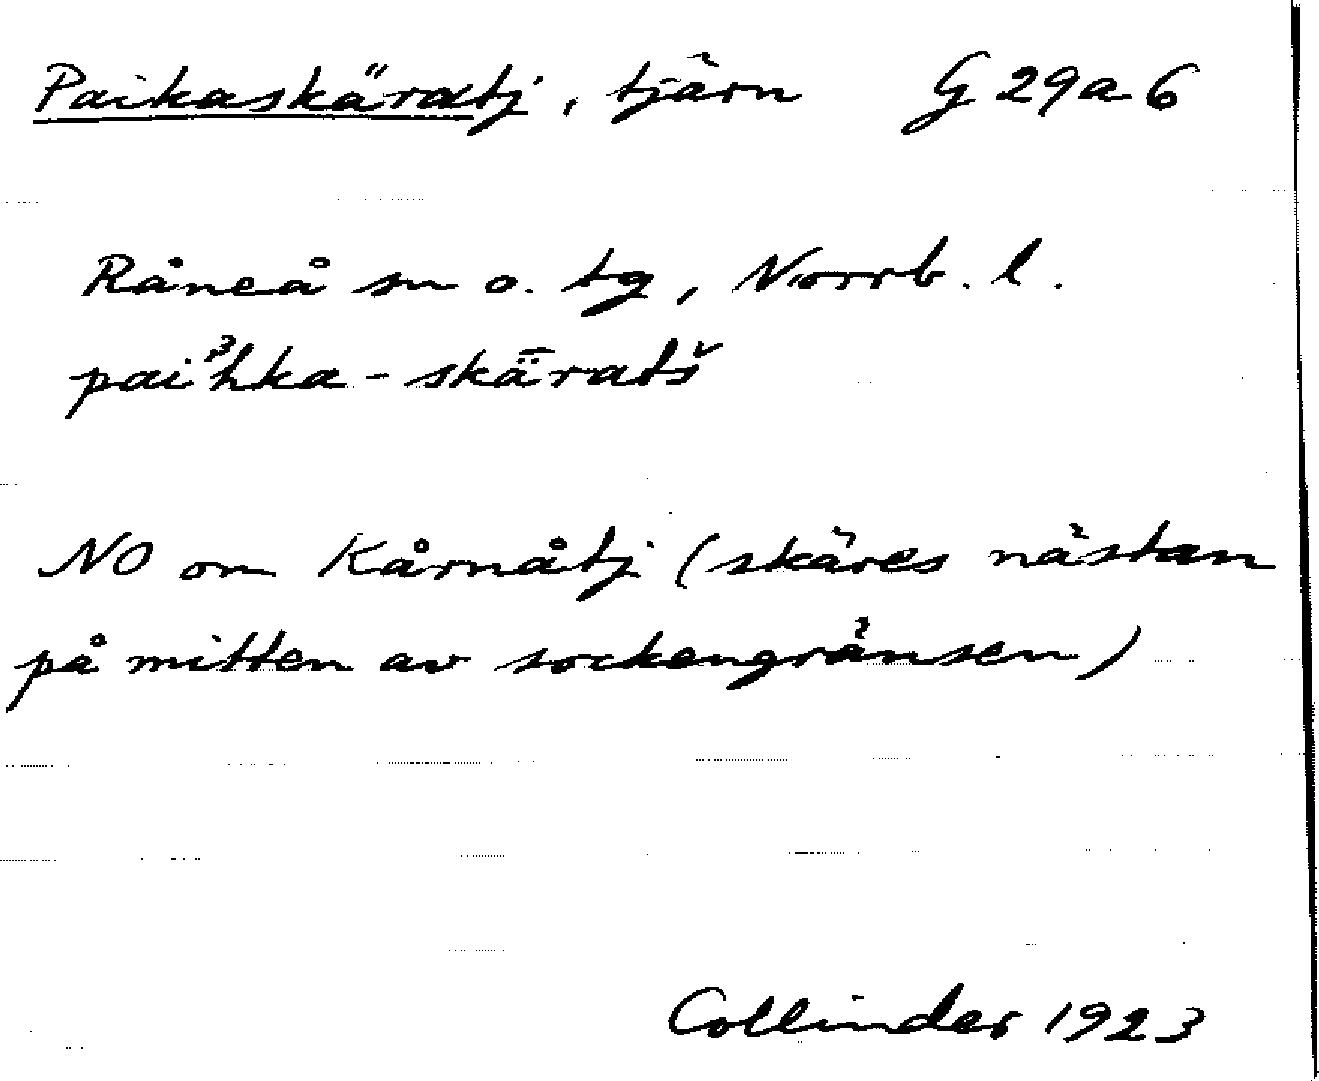 Paikaskäratj, tjärn G 29a 6
Råneå sn o. tg, Norrb. l.
pai³hka - skǟratš
NO om Kårnåtj (skäres nästan
på mitten av sockengränsen)
Collinder 1923